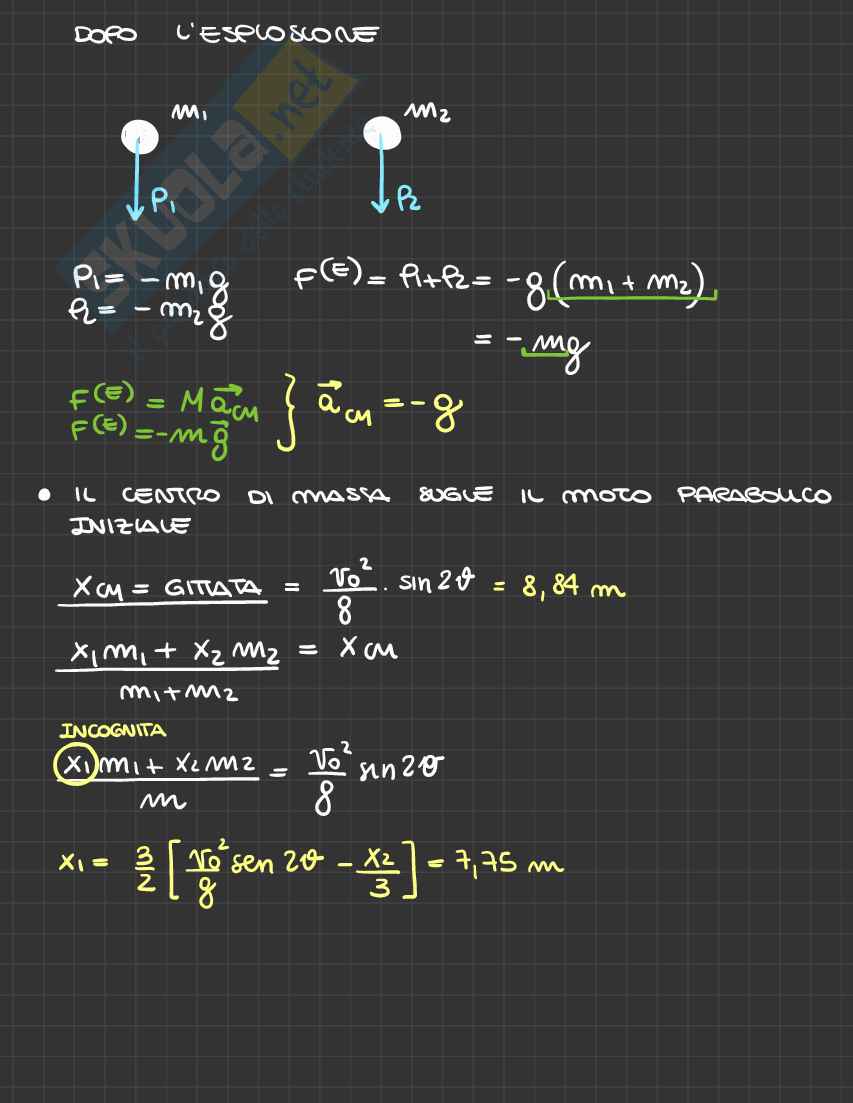 DOPO L'ESPLOSIONE
m₁ m₂
P₁ P₂
SKUOLA.net
P₁ = -m₁g F⁽ᴱ⁾ = P₁+P₂ = -g(m₁ + m₂)
P₂ = -m₂g
= -mg
F⁽ᴱ⁾ = M a⃗ CM } a⃗ CM = -g
F⁽ᴱ⁾ = -m g⃗
• IL CENTRO DI MASSA SUGUE IL MOTO PARABOLICO
INIZIALE
XCM = GITTATA = v₀²/g · sin2θ = 8,84 m
(x₁m₁ + x₂m₂)/(m₁+m₂) = XCM
INCOGNITA
(x₁m₁ + x₂m₂)/m = v₀²/g sin2θ
x₁ = 3/2 [v₀²/g sen 2θ - x₂/3] = 7,75 m